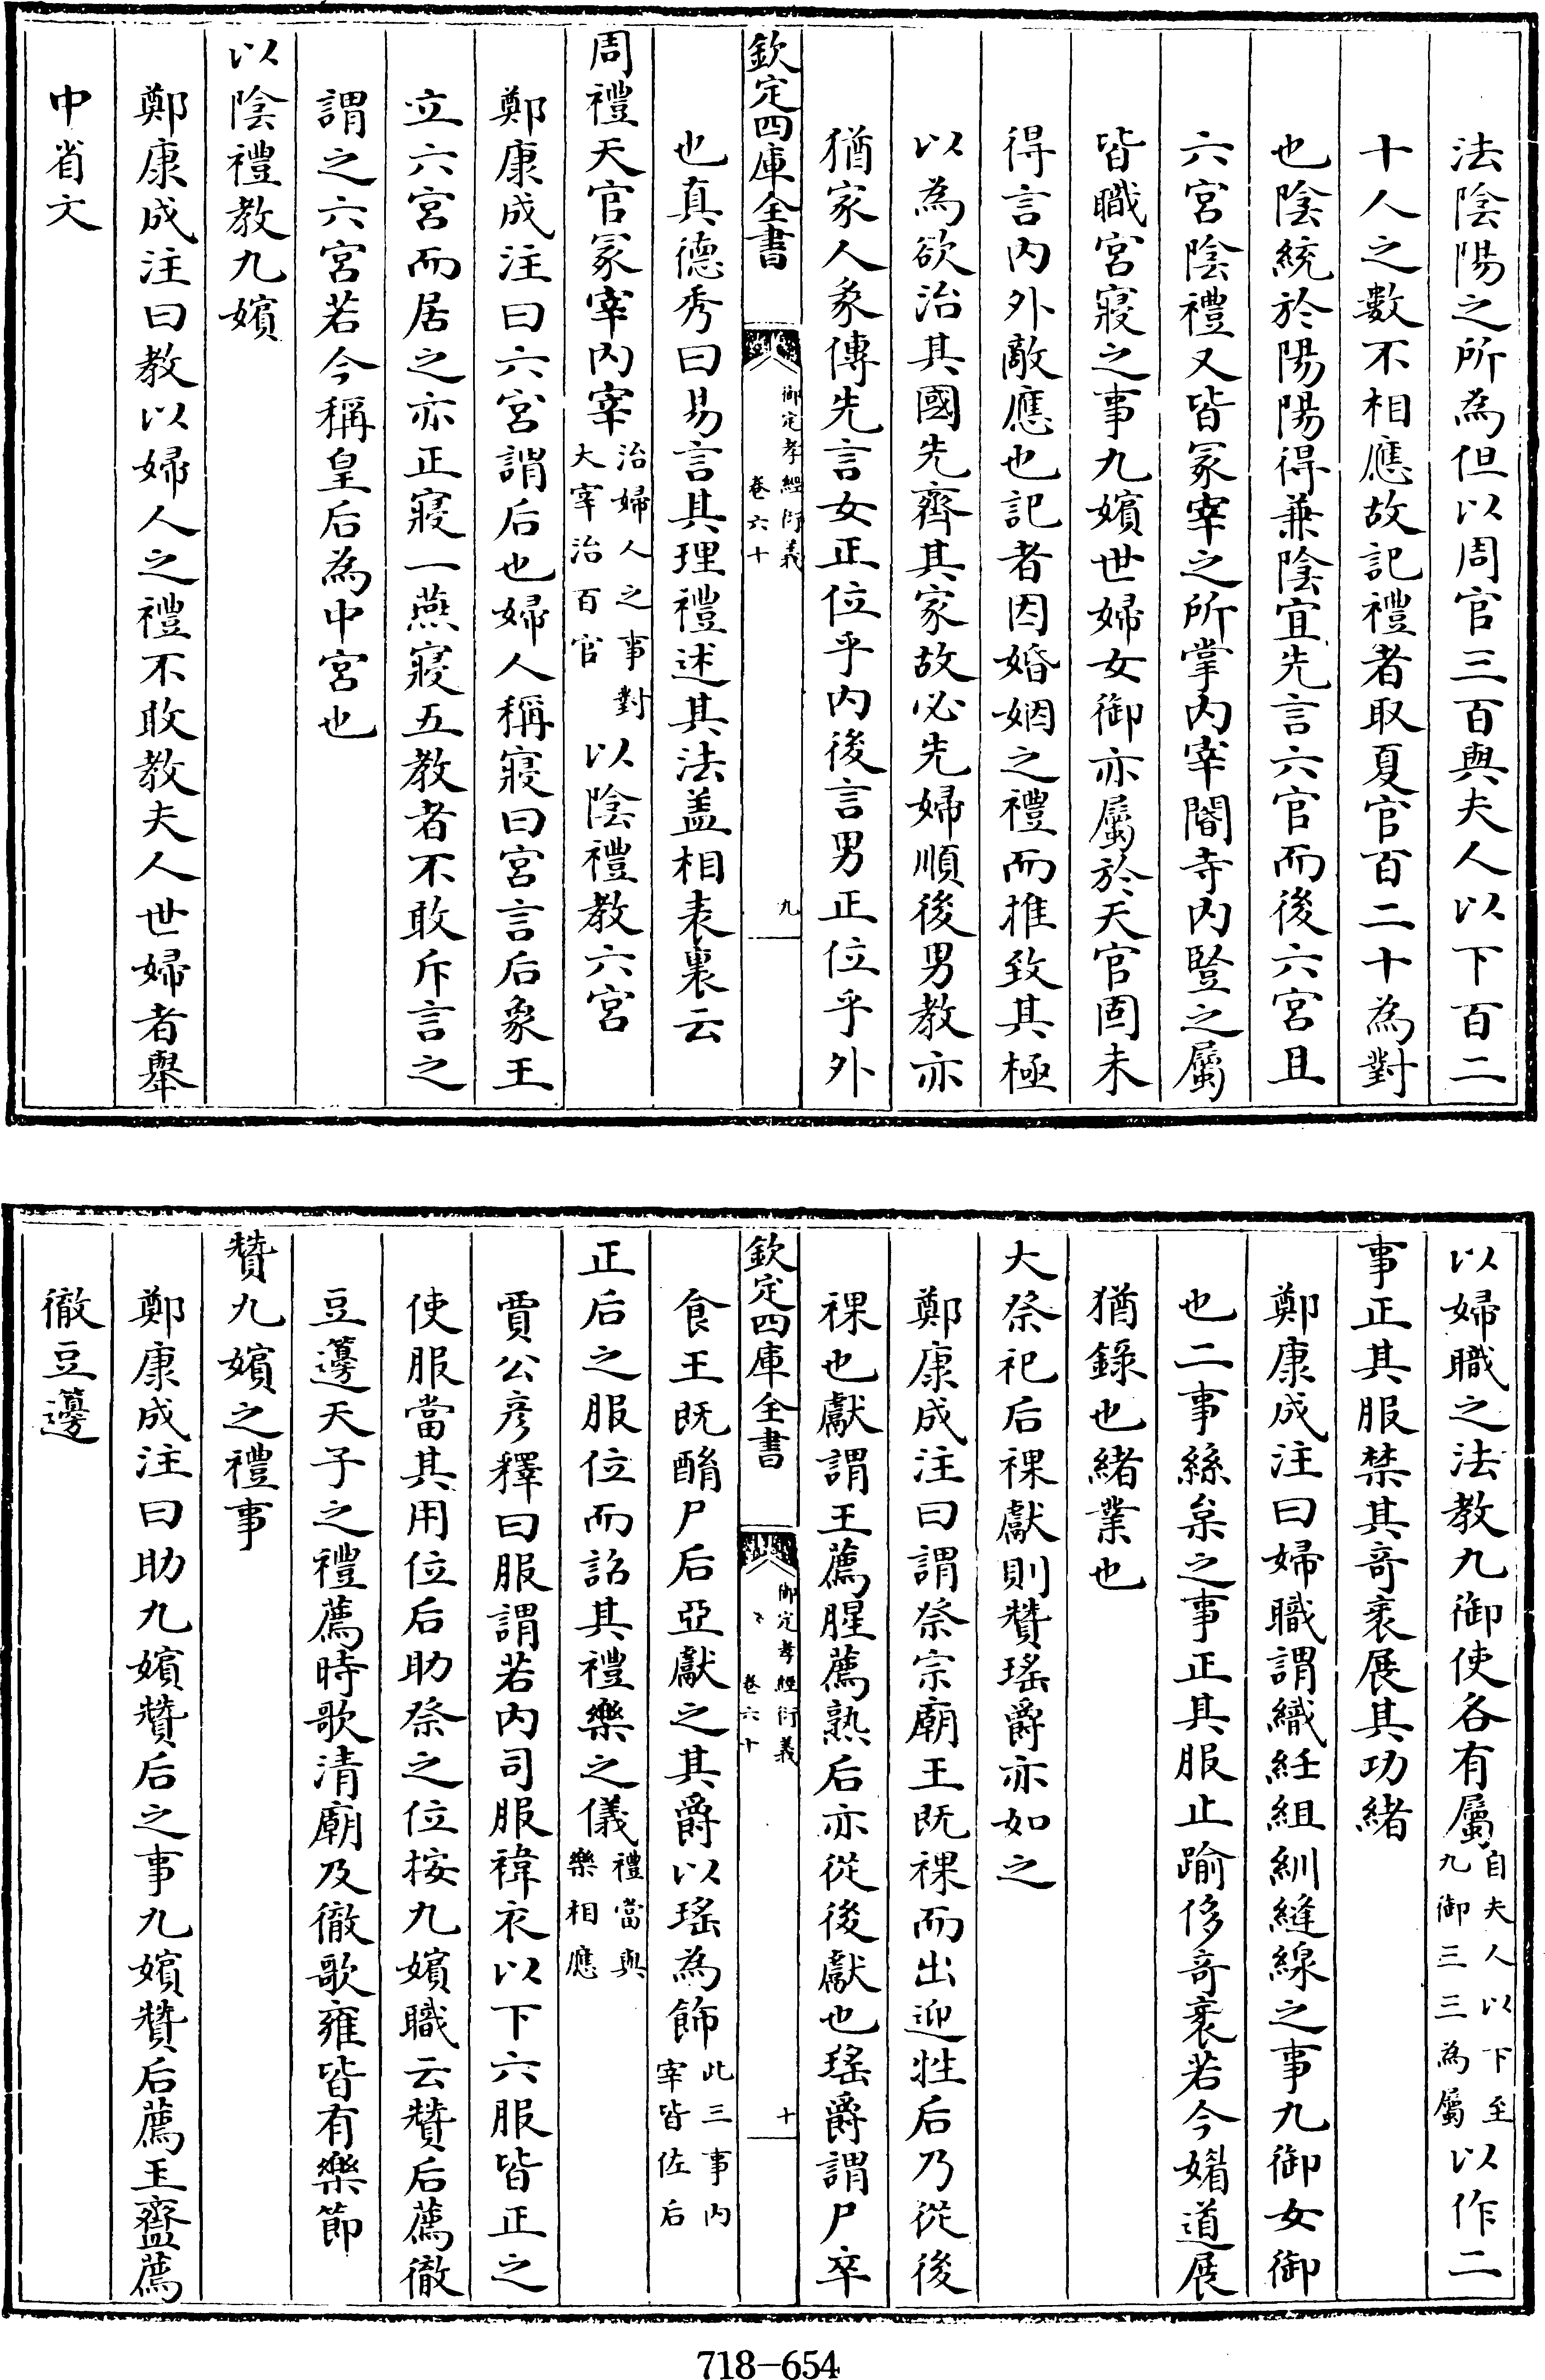 法陰陽之所為但以周官三百與夫人以下百二
十人之數不相應故記禮者取夏官百二十為對
也陰統於陽陽得兼陰宜先言六官而後六宮且
六宮陰禮又皆冢宰之所掌内宰閽寺内豎之屬
皆職宮寢之事九嬪世婦女御亦屬於天官固未
得言内外敵應也記者因婚姻之禮而推致其極
以為欲治其國先齊其家故必先婦順後男教亦
猶家人彖傳先言女正位乎内後言男正位乎外
欽定四庫全書
御定孝經衍義
卷六十
九
也真德秀曰易言其理禮述其法盖相表裏云
周禮天官冢宰内宰治婦人之事對大宰治百官以陰禮教六宮
鄭康成注曰六宮謂后也婦人稱寢曰宮言后象王
立六宮而居之亦正寢一燕寢五教者不敢斥言之
謂之六宮若今稱皇后為中宮也
以陰禮教九嬪
鄭康成注曰教以婦人之禮不敢教夫人世婦者舉
中省文
以婦職之法教九御使各有屬自夫人以下至九御三三為屬以作二
事正其服禁其竒衺展其功緒
鄭康成注曰婦職謂織紝組紃縫線之事九御女御
也二事絲枲之事正其服止踰侈竒衺若今媚道展
猶錄也緒業也
大祭祀后祼獻則贊瑤爵亦如之
鄭康成注曰謂祭宗廟王既祼而出迎牲后乃從後
祼也獻謂王薦腥薦熟后亦從後獻也瑤爵謂尸卒
欽定四庫全書
御定孝經衍義
卷六十
十
食王既酳尸后亞獻之其爵以瑤為飾此三事内宰皆佐后
正后之服位而詔其禮樂之儀禮當與樂相應
賈公彦釋曰服謂若内司服褘衣以下六服皆正之
使服當其用位后助祭之位按九嬪職云贊后薦徹
豆籩天子之禮薦時歌清廟及徹歌雍皆有樂節
贊九嬪之禮事
鄭康成注曰助九嬪贊后之事九嬪贊后薦玉齍薦
徹豆籩
718-654